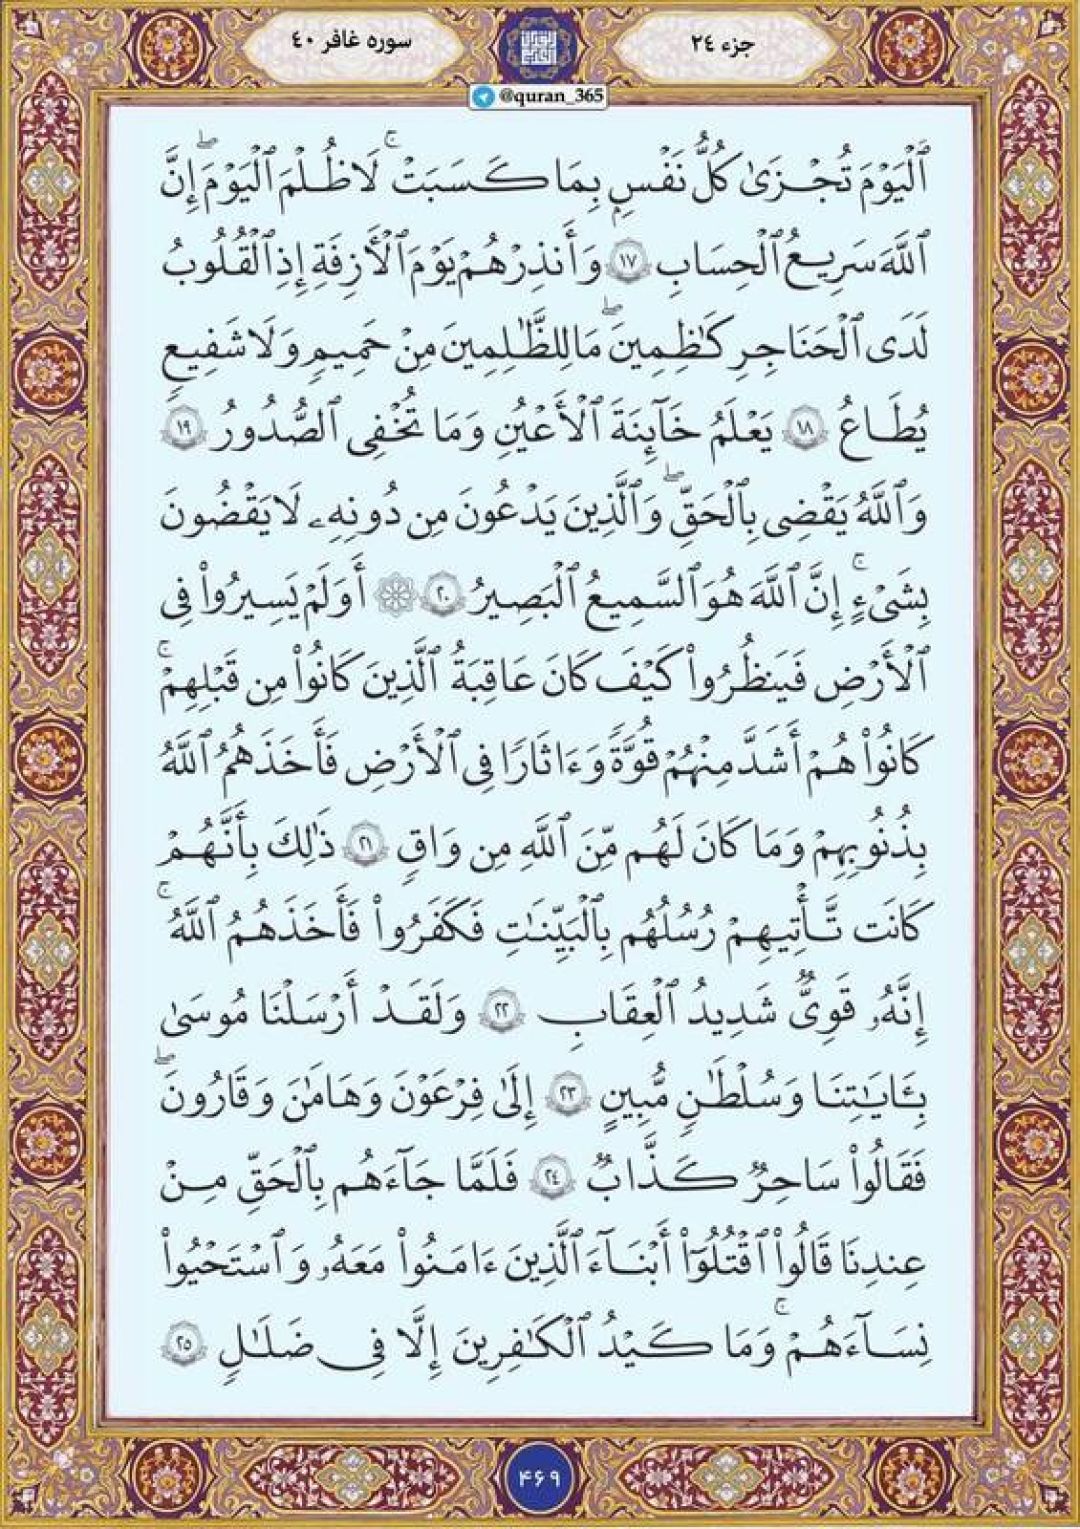 جزء ٢٤
سوره غافر ٤٠
@quran_365
ٱلۡيَوۡمَ تُجۡزَىٰ كُلُّ نَفۡسِۭ بِمَا كَسَبَتۡۚ لَا ظُلۡمَ ٱلۡيَوۡمَۖ إِنَّ
ٱللَّهَ سَرِيعُ ٱلۡحِسَابِ ١٧ وَأَنذِرۡهُمۡ يَوۡمَ ٱلۡأٓزِفَةِ إِذِ ٱلۡقُلُوبُ
لَدَى ٱلۡحَنَاجِرِ كَٰظِمِينَۚ مَا لِلظَّٰلِمِينَ مِنۡ حَمِيمٖ وَلَا شَفِيعٖ
يُطَاعُ ١٨ يَعۡلَمُ خَآئِنَةَ ٱلۡأَعۡيُنِ وَمَا تُخۡفِي ٱلصُّدُورُ ١٩
وَٱللَّهُ يَقۡضِي بِٱلۡحَقِّۖ وَٱلَّذِينَ يَدۡعُونَ مِن دُونِهِۦ لَا يَقۡضُونَ
بِشَيۡءٍۚ إِنَّ ٱللَّهَ هُوَ ٱلسَّمِيعُ ٱلۡبَصِيرُ ٢٠ ۞ أَوَلَمۡ يَسِيرُواْ فِي
ٱلۡأَرۡضِ فَيَنظُرُواْ كَيۡفَ كَانَ عَٰقِبَةُ ٱلَّذِينَ كَانُواْ مِن قَبۡلِهِمۡۚ
كَانُواْ هُمۡ أَشَدَّ مِنۡهُمۡ قُوَّةٗ وَءَاثَارٗا فِي ٱلۡأَرۡضِ فَأَخَذَهُمُ ٱللَّهُ
بِذُنُوبِهِمۡ وَمَا كَانَ لَهُم مِّنَ ٱللَّهِ مِن وَاقٖ ٢١ ذَٰلِكَ بِأَنَّهُمۡ
كَانَت تَّأۡتِيهِمۡ رُسُلُهُم بِٱلۡبَيِّنَٰتِ فَكَفَرُواْ فَأَخَذَهُمُ ٱللَّهُۚ
إِنَّهُۥ قَوِيّٞ شَدِيدُ ٱلۡعِقَابِ ٢٢ وَلَقَدۡ أَرۡسَلۡنَا مُوسَىٰ
بِـَٔايَٰتِنَا وَسُلۡطَٰنٖ مُّبِينٍ ٢٣ إِلَىٰ فِرۡعَوۡنَ وَهَٰمَٰنَ وَقَٰرُونَۖ
فَقَالُواْ سَٰحِرٞ كَذَّابٞ ٢٤ فَلَمَّا جَآءَهُم بِٱلۡحَقِّ مِنۡ
عِندِنَا قَالُواْ ٱقۡتُلُوٓاْ أَبۡنَآءَ ٱلَّذِينَ ءَامَنُواْ مَعَهُۥ وَٱسۡتَحۡيُواْ
نِسَآءَهُمۡۚ وَمَا كَيۡدُ ٱلۡكَٰفِرِينَ إِلَّا فِي ضَلَٰلٖ ٢٥
۴۶۹